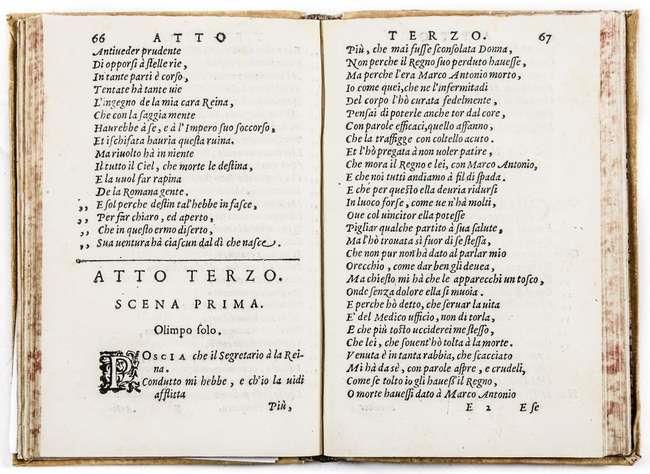 66 ATTO
Antiueder prudente
Di opporsi à stelle rie,
In tante parti è corso,
Tentate hà tante uie
L'ingegno de la mia cara Reina,
Che con la saggia mente
Haurebbe à se, e à l'Impero suo soccorso,
Et ischifata hauria questa ruina.
Ma riuolto hà in niente
Il tutto il Ciel, che morte le destina,
E la uuol far rapina
De la Romana gente.
,, E sol perche destin tal'hebbe in fasce,
,, Per far chiaro, ed aperto,
,, Che in questo ermo diserto,
,, Sua uentura hà ciascun dal dì che nasce.
ATTO TERZO.
SCENA PRIMA.
Olimpo solo.
POSCIA che il Segretario à la Rei-
na.
Condutto mi hebbe, e ch'io la uidi
afflitta
Più,
TERZO. 67
Più, che mai fusse sconsolata Donna,
Non perche il Regno suo perduto hauesse,
Ma perche l'era Marco Antonio morto,
Io come quei, che ne l'infermitadi
Del corpo l'hò curata fedelmente,
Pensai di poterle anche tor dal core,
Con parole efficaci, quello affanno,
Che la traffigge con coltello acuto.
Et l'hò pregata à non uoler patire,
Che mora il Regno e lei, con Marco Antonio,
E che noi tutti andiamo à fil di spada.
E che per questo ella deuria ridursi
In luoco forse, come ue n'hà molti,
Oue col uincitor ella potesse
Pigliar qualche partito à sua salute,
Ma l'hò trouata sì fuor di se stessa,
Che non pur non hà dato al parlar mio
Orecchio, come dar ben gli deuea,
Ma chiesto mi hà che le apparecchi un tosco,
Onde senza dolore ella si muoia.
E perche hò detto, che seruar la uita
E' del Medico ufficio, non di torla,
E che più tosto ucciderei me stesso,
Che lei, che souent'hò tolta à la morte.
Venuta è in tanta rabbia, che scacciato
Mi hà da sè, con parole aspre, e crudeli,
Come se tolto io gli hauessi il Regno,
O morte hauessi dato à Marco Antonio
E 2 E se